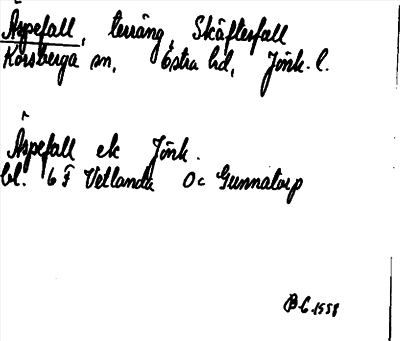 Äspefall, terräng, Skäftesfall
Korsberga sn, Östra hd, Jönk. l.
Äspefall ek Jönk.
bl. 6 F Vetlanda 0c Gunnatorp
BG 1558